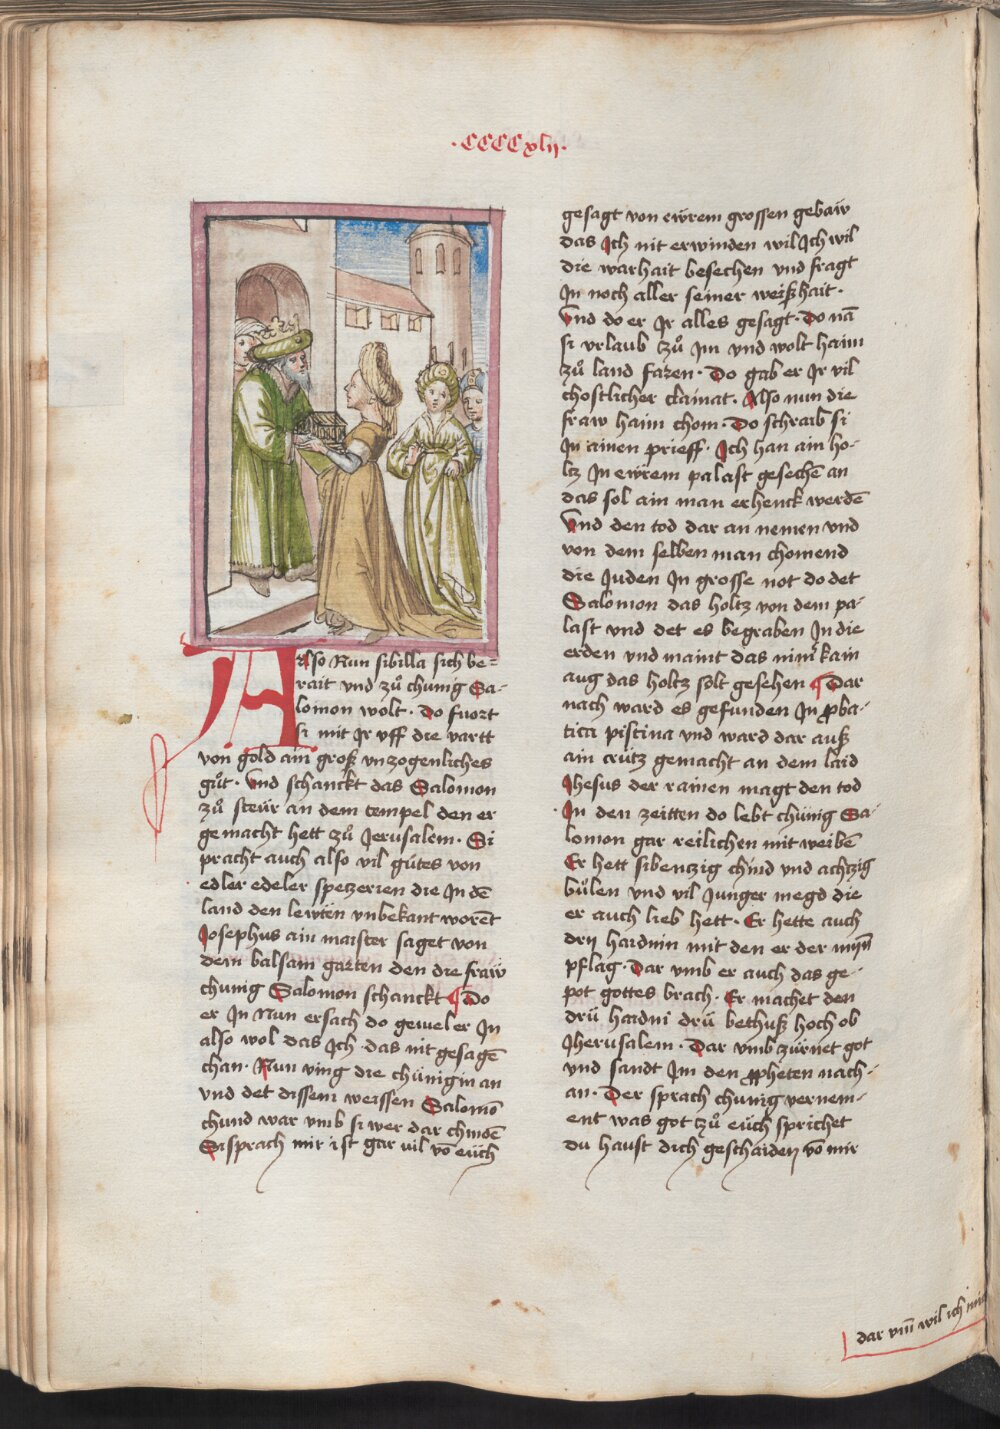 ·CCCCxlij·
Also Nun sibilla sich be=
rait vnd zů chunig Sa-
lomon wolt· Do fuort
si mit Jr vff die vartt
von gold ain groß vnzogenliches
gůt· vnd schanckt das Salomon
zů steür an dem tempel den er
gemacht hett zů Jerusalem· Si
pracht auch also vil gütes von
edler edeler spetzerien die Jn dē
land den lewten vnbekant worēt
Josephus ain maister saget von
dem balsam garten den die fraw
chunig Salomon schanckt ¶ Do
er Jn Nun ersach do geuiel er Jn
also wol das Jch das nit gesagē
chan· Nun ving die chünigin an
vnd det dissem weissen Salomō
chund war vmb si wer dar chmōē
Si sprach mir ist gar vil vō eüch
gesagt von ewrem grossen gebaẅ
das Jch nit erwinden wil Jch wil
die warhait besechen vnd fragt
Jn noch aller seiner weißhait·
Vnd do er Jr alles gesagt· Do nā
si vrlaub tzů Jm vnd wolt haim
tzů land faren· Do gab er Jr vil
chostlicher clainat· Also nun die
fraw haim chom· Do schraib si
Jn ainen prieff· Jch han ain ho-
ltz Jn ewrem palast gesechē an
das sol ain man erhenck werdē
Vnd den tod dar an nemen vnd
von dem selben man chomend
die Juden Jn grosse not do det
Salomon das holtz von dem pa-
last vnd det es begraben Jn die
erden vnd maint das nim̄ kain
aug das holtz solt gesehen ¶ Dar
nach ward es gefunden Jn proba-
tica piscina vnd ward dar auß
ain crütz gemacht an dem laid
Jhesus der rainen magt den tod
Jn den zeitten do lebt chünig Sa-
lomon gar reilichen mit weibē
Er hett sibentzig chind vnd achtzig
bůlen vnd vil Junger megd die
er auch lieb hett· Er hette auch
drij haidnin mit den er der mynn
pflag· Dar vmb er auch das ge-
pot gottes brach· Er machet den
drü haidni drü bethuß hoch ob
Jherusalem· Dar vmb zürnet got
vnd sandt Jm den propheten nach-
an· Der sprach chunig vernem-
ent was got tzů eüch sprichet
du haust dich geschaiden vō mir
dar vm̄ wil ich mich